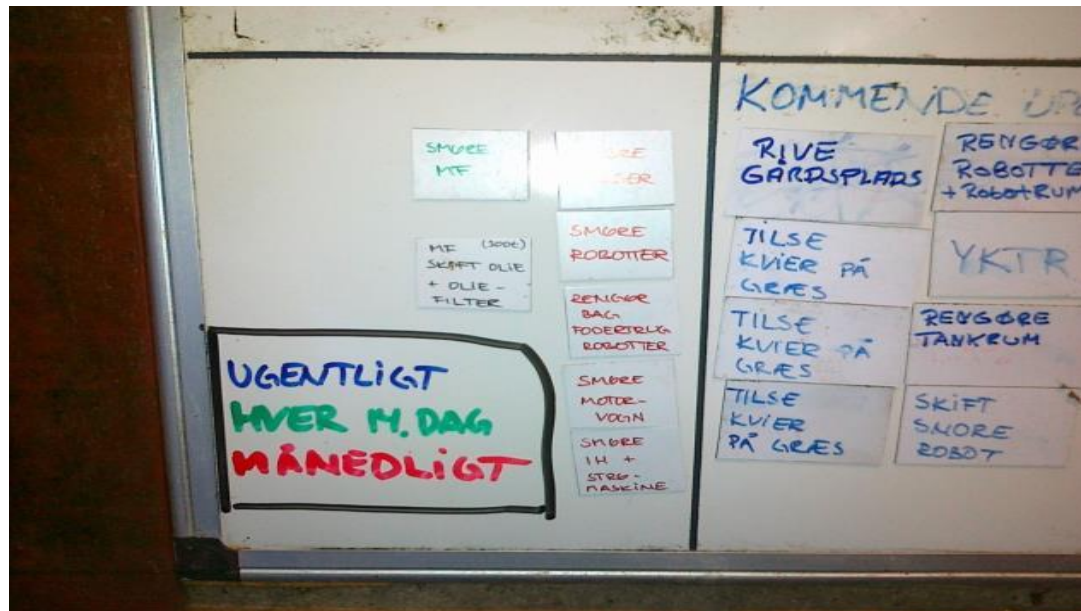 SMØRE
MF
SMØRE
ROBOTTER
MF (500t)
SKIFT OLIE
+ OLIE-
FILTER
RENGØR
BAG
FODERTRUG
ROBOTTER
SMØRE
MOTOR-
VOGN
SMØRE
IH +
STRØ-
MASKINE
UGENTLIGT
HVER M. DAG
MÅNEDLIGT
KOMMENDE
RIVE
GÅRDSPLADS
RENGØR
ROBOTTE
+ ROBOTRUM
TILSE
KVIER PÅ
GRÆS
YKTR
TILSE
KVIER PÅ
GRÆS
RENGØRE
TANKRUM
TILSE
KVIER
PÅ GRÆS
SKIFT
SMØRE
ROBOT